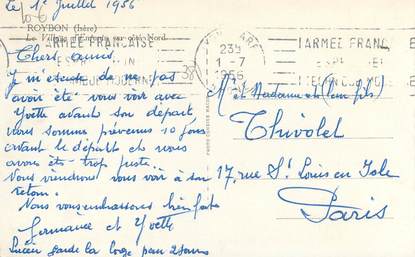 le 1er Juillet 1956
ROYBON (Isère)
Le Village d'Enfants sur côté Nord
Chers amis,
Je m'excuse de ne pas
avoir été vous voir avec
Yvette avant son départ,
nous sommes prévenus 10 jours
avant le départ et nous
avons été trop juste.
Nous viendrons vous voir à son
retour.
Nous vous embrassons bien fort
Germaine et Yvette
Lucien garde la loge pour 2 jours
L'ARMÉE FRANÇAISE
MODERNE
23H
1-7
1956
L'ARMÉE FRANÇ
Mr et Madame et (leur fils)
Thivolet
17, rue St Louis en Isle
Paris